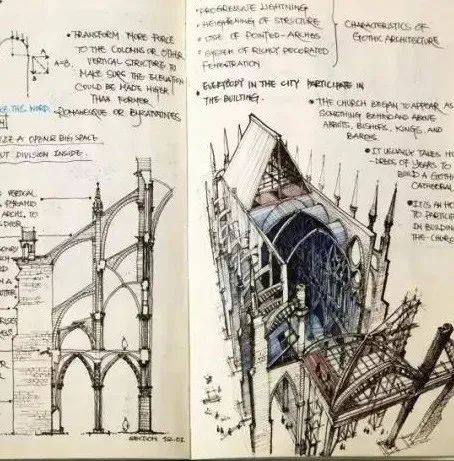 • TRANSFORM MORE FORCE
TO THE COLUMNS OR OTHER
VERTICAL STRUCTURE TO
MAKE SURE THE ELEVATION
COULD BE MADE HIGHER
THAN FORMER.
A=B.
THIS WORD.
ROMANESQUE OR BYZANTINES
A OPENLR BIG SPACE
OUT DIVISION INSIDE.
VERTICAL
ARCHI. TO
SECTION
12.02
PROGRESSIVE LIGHTNING
• HEIGHTENING OF STRUCTURE
• USE OF POINTED-ARCHES
• SYSTEM OF RICHLY DECORATED
FENESTRATION
CHARACTERISTICS OF
GOTHIC ARCHITECTURE
• EVERYBODY IN THE CITY PARTICIPATE IN
THE BUILTING.
• THE CHURCH BEGAN TO APPEAR AS
SOMETHING BEHIND AND ABOVE
ABBOTS, BISHOPS, KINGS, AND
BARONS
• IT USUALLY TAKES HU
-DREDS OF YEARS TO
BUILD A GOTHI
CATHEDRAL
• IT IS AN HO
TO PARTICIP
IN BUILDIN
THE CHURC